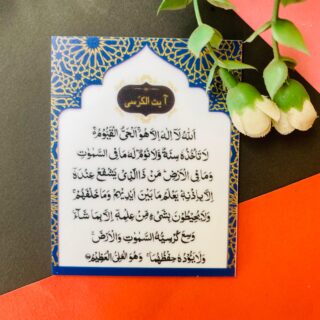 آیت الکرسی
اَللّٰهُ لَاۤ اِلٰهَ اِلَّا هُوَ الْحَیُّ الْقَیُّوْمُ
لَا تَاْخُذُهٗ سِنَةٌ وَّلَا نَوْمٌ لَهٗ مَا فِی السَّمٰوٰتِ
وَمَا فِی الْاَرْضِ مَنْ ذَا الَّذِیْ یَشْفَعُ عِنْدَهٗۤ
اِلَّا بِاِذْنِهٖ یَعْلَمُ مَا بَیْنَ اَیْدِیْهِمْ وَمَا خَلْفَهُمْ
وَلَا یُحِیْطُوْنَ بِشَیْءٍ مِّنْ عِلْمِهٖۤ اِلَّا بِمَا شَآءَ
وَسِعَ كُرْسِیُّهُ السَّمٰوٰتِ وَالْاَرْضَ
وَلَا یَئُوْدُهٗ حِفْظُهُمَا وَهُوَ الْعَلِیُّ الْعَظِیْمُ